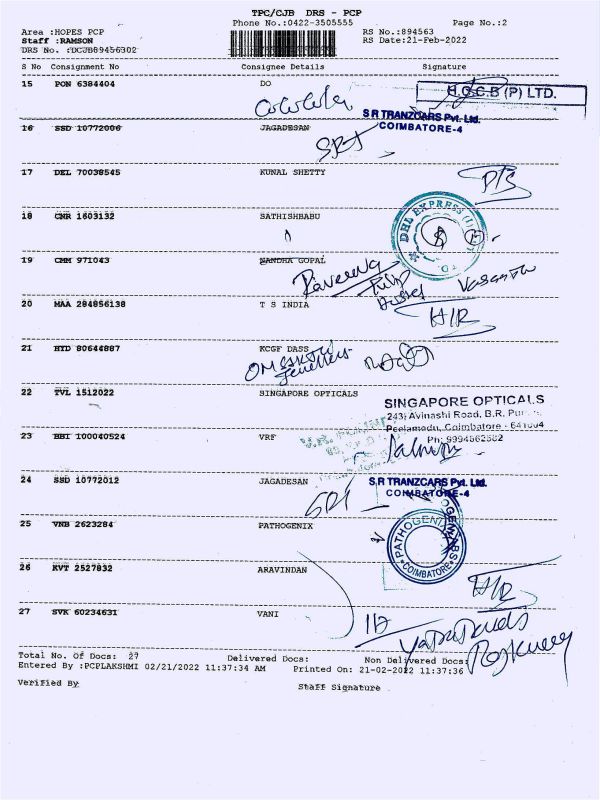 TPC/CJB DRS - PCP
Phone No.:0422-3505555 Page No.:2
Area :HOPES PCP RS No.:894563
Staff :RAMSON RS Date:21-Feb-2022
DRS No. :DCJB89456302
S No Consignment No Consignee Details Signature
15 PON 6384404 DO
H.G.C.B (P) LTD.
S R TRANZCARS Pvt. Ltd.
COIMBATORE-4
16 SSD 10772006 JAGADESAN
SRT
17 DEL 70038545 KUNAL SHETTY
18 CNR 1603132 SATHISHBABU
DHL EXPRESS (I)
19 CMM 971043 NANDHA GOPAL
20 MAA 284856138 T S INDIA
H/R
21 HYD 80644887 KCGF DASS
22 TVL 1512022 SINGAPORE OPTICALS
SINGAPORE OPTICALS
243, Avinashi Road, B.R. Pur
Peelamedu, Coimbatore - 641004
Ph: 9994562562
23 BBI 100040524 VRF
24 SSD 10772012 JAGADESAN
S.R TRANZCARS Pvt. Ltd.
COIMBATORE-4
SRT
25 VNB 2623284 PATHOGENIX
PATHOGENIX LABS COIMBATORE
26 KVT 2527832 ARAVINDAN
H/R
27 SVK 60234631 VANI
Total No. Of Docs: 27 Delivered Docs: Non Delivered Docs:
Entered By :PCPLAKSHMI 02/21/2022 11:37:34 AM Printed On: 21-02-2022 11:37:36
Verified By Staff Signature